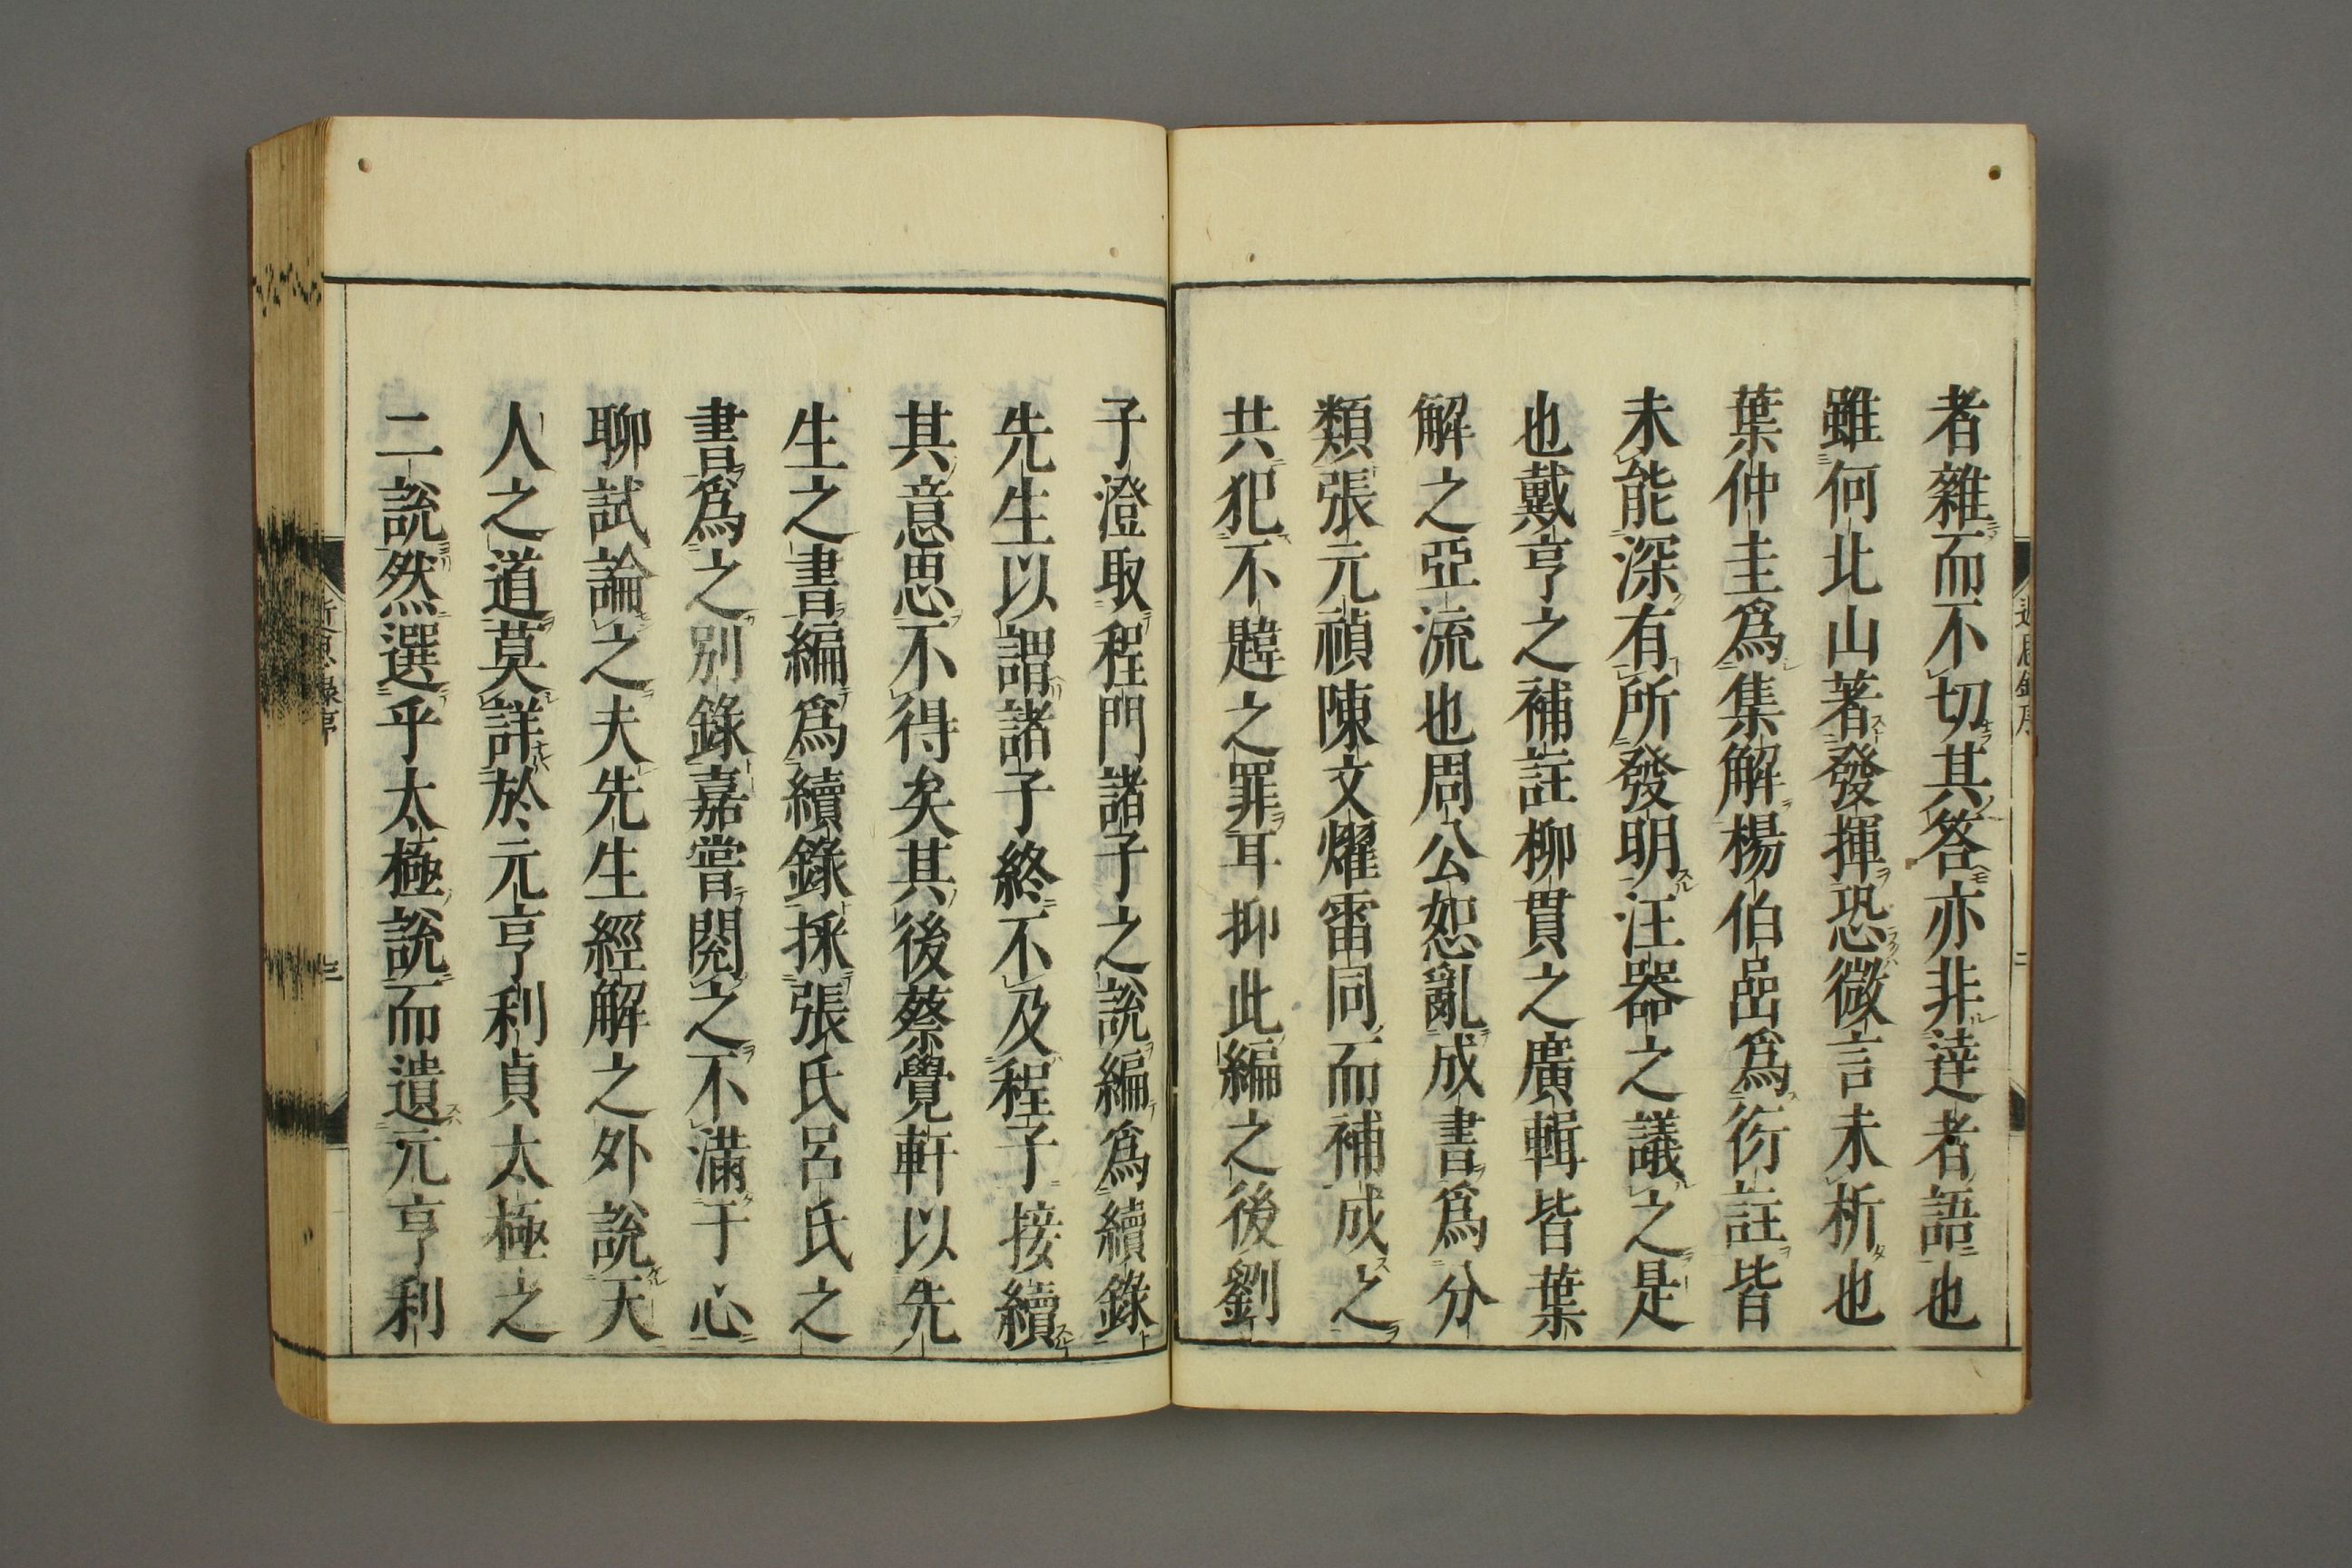 者雜而不切其答亦非達者語也
雖何北山著發揮恐微言未析也
葉仲圭爲集解楊伯嵒爲衍註皆
未能深有所發明汪器之議之是
也戴亨之補註柳貫之廣輯皆葉
解之亞流也周公恕亂成書爲分
類張元禎陳文燿雷同而補成之
共犯不韙之罪耳抑此編之後劉
子澄取程門諸子之說編爲續錄
先生以謂諸子終不及程子接續
其意思不得矣其後蔡覺軒以先
生之書編爲續錄採張氏呂氏之
書爲之別錄嘉嘗閱之不滿于心
聊試論之夫先生經解之外說天
人之道莫詳於元亨利貞太極之
二說然選乎太極說而遺元亨利
近思錄序
二
近思錄序
三